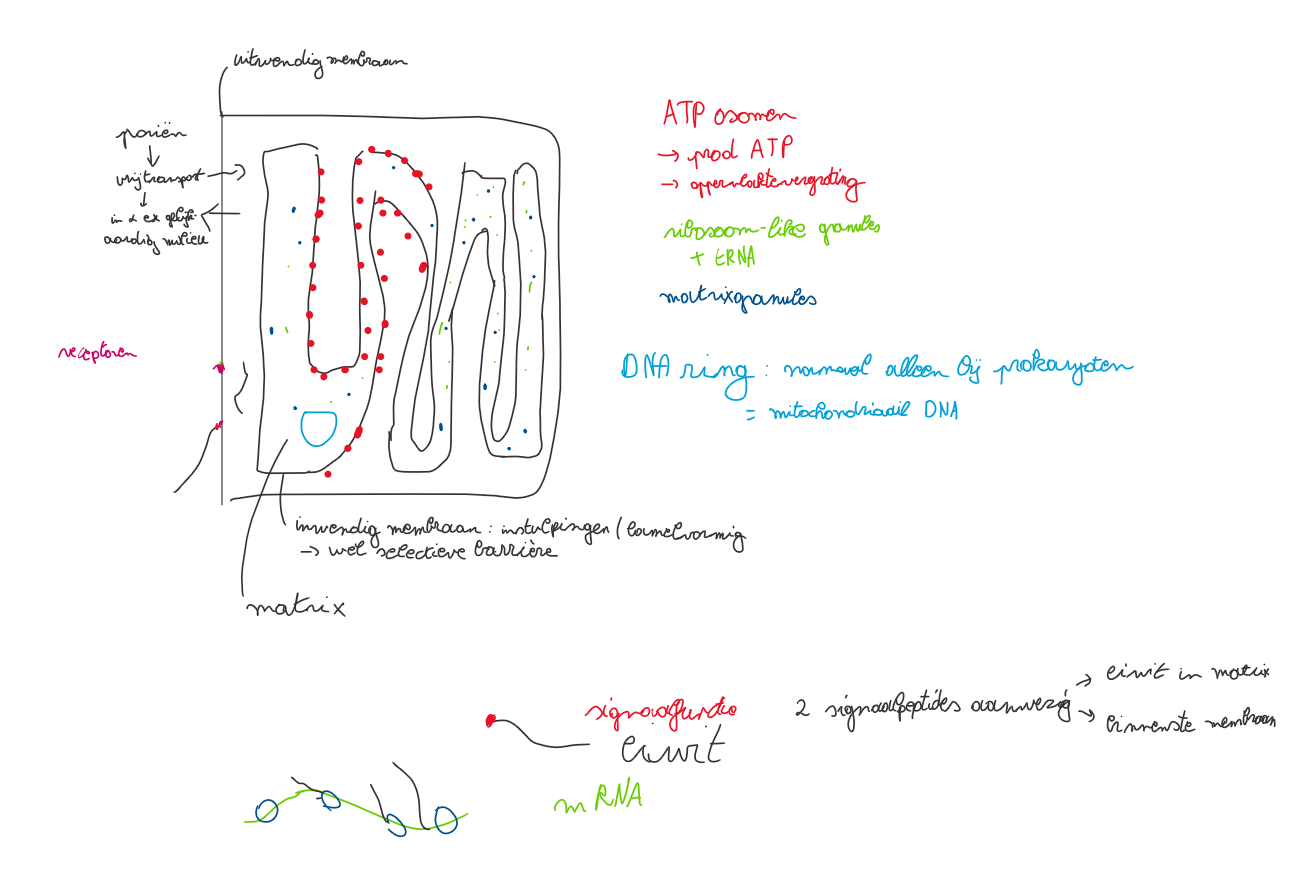 uitwendig membraan
poriën
vrij transport
in & ex gelijk-
aardig milieu
receptoren
ATP osomen
→ prod ATP
→ oppervlaktevergroting
ribosoom-like granules
+ tRNA
matrixgranules
DNA ring : normaal alleen bij prokaryoten
= mitochondriaal DNA
inwendig membraan : instulpingen / lamelvormig
→ wel selectieve barrière
matrix
eiwit
mRNA
2 signaalpeptides aanwezig
→ eiwit in matrix
→ binnenste membraan